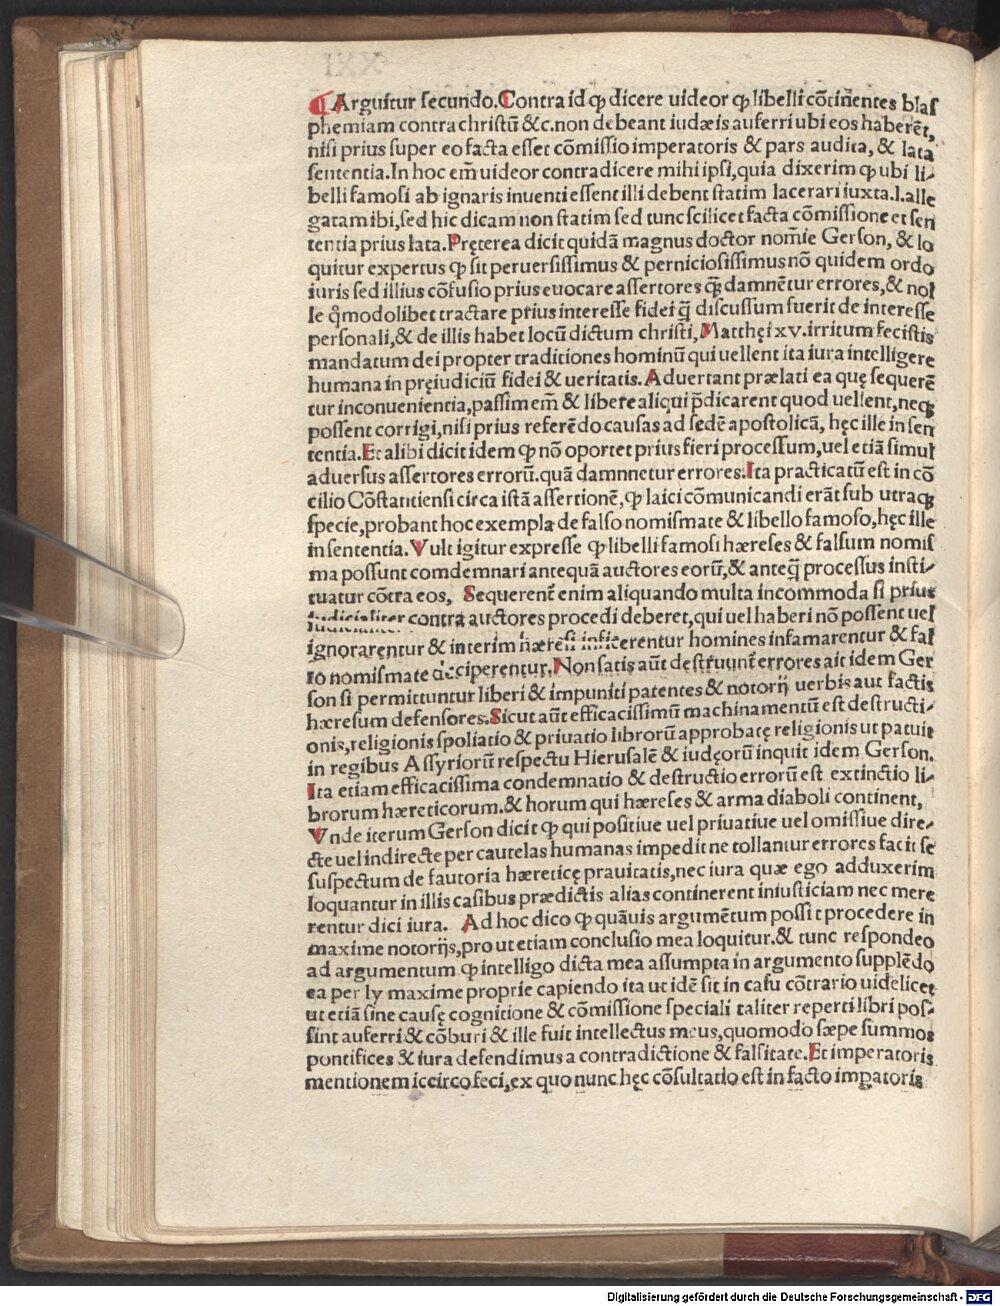 ¶ Arguitur secundo. Contra id ꝙ dicere uideor ꝙ libelli cõtinentes blaſ
phemiam contra christũ &c. non debeant iudæis auferri ubi eos haberẽt,
niſi prius ſuper eo facta eſſet cõmiſſio imperatoris & pars audita, & lata
ſententia. In hoc em̃ uideor contradicere mihi ipſi, quia dixerim ꝙ ubi li⸗
belli famoſi ab ignaris inuenti eſſent illi debent ſtatim lacerari iuxta. l. alle
gatam ibi, ſed hic dicam non ſtatim ſed tunc ſcilicet facta cõmiſſione et ſen
tentia prius lata. Pręterea dicit quidã magnus doctor nomĩe Gerſon, & lo
quitur expertus ꝙ ſit peruerſiſſimus & pernicioſiſſimus nõ quidem ordo
iuris ſed illius cõfuſio prius euocare aſſertores q̃ꝫ damnẽtur errores, & nol
le q̃modolibet tractare prius intereſſe fidei q̃ diſcuſſum fuerit de intereſſe
perſonali, & de illis habet locũ dictum chriſti, Matthęi xv. irritum feciſtis
mandatum dei propter traditiones hominũ qui uellent ita iura intelligere
humana in pręiudiciũ fidei & ueritatis. Aduertant prælati ea quę ſequerẽ
tur inconuenientia, paſſim em̃ & libere aliqui p̃dicarent quod uellent, neqꝫ
poſſent corrigi, niſi prius referẽdo cauſas ad ſedẽ apoſtolicã, hęc ille in ſen
tentia. Et alibi dicit idem ꝙ nõ oportet prius fieri proceſſum, uel etiã ſimul
aduerſus aſſertores errorũ. quã damnnetur errores. Ita practicatũ eſt in cõ
cilio Cõſtantienſi circa iſtã aſſertionẽ, ꝙ laici cõmunicandi erãt ſub utraqꝫ
ſpecie, probant hoc exempla de falſo nomiſmate & libello famoſo, hęc ille
in ſententia. Vult igitur expreſſe ꝙ libelli famoſi hæreſes & falſum nomiſ
ma poſſunt comdemnari antequã auctores eorũ, & anteq̃ proceſſus inſti⸗
tuatur cõtra eos, Sequerent̃ enim aliquando multa incommoda ſi prius
iudicialiter contra auctores procedi deberet, qui uel haberi nõ poſſent uel
ignorarentur & interim hæreſi inficerentur homines infamarentur & fal
ſo nomiſmate deciperentur. Non ſatis aũt deſtruunt̃ errores ait idem Ger
ſon ſi permittuntur liberi & impuniti patentes & notorij uerbis aut factis
hæreſum defenſores. Sicut aũt efficaciſſimũ machinamentũ eſt deſtructi⸗
onis, religionis ſpoliatio & priuatio librorũ approbatę religionis ut patuit
in regibus Aſſyriorũ reſpectu Hieruſalẽ & iudęorũ inquit idem Gerſon.
Ita etiam efficaciſſima condemnatio & deſtructio errorũ eſt extinctio li⸗
brorum hæreticorum. & horum qui hæreſes & arma diaboli continent,
Vnde iterum Gerſon dicit ꝙ qui poſitiue uel priuatiue uel omiſſiue dire⸗
cte uel indirecte per cautelas humanas impedit ne tollantur errores facit ſe
ſuſpectum de fautoria hæreticę prauitatis, nec iura quæ ego adduxerim
loquantur in illis caſibus prædictis alias continerent iniuſticiam nec mere
rentur dici iura. Ad hoc dico ꝙ quãuis argumẽtum poſſit procedere in
maxime notorijs, pro ut etiam concluſio mea loquitur. & tunc reſpondeo
ad argumentum ꝙ intelligo dicta mea aſſumpta in argumento ſupplẽdo
ea per ly maxime proprie capiendo ita ut idẽ ſit in caſu cõtrario uidelicet
ut etiã ſine cauſę cognitione & cõmiſſione ſpeciali taliter reperti libri poſ⸗
ſint auferri & cõburi & ille fuit intellectus meus, quomodo ſæpe ſummos
pontifices & iura defendimus a contradictione & falſitate. Et imperatoris
mentionem iccirco feci, ex quo nunc hęc cõſultatio eſt in facto imꝑatoris
Digitalisierung gefördert durch die Deutsche Forschungsgemeinschaft - DFG